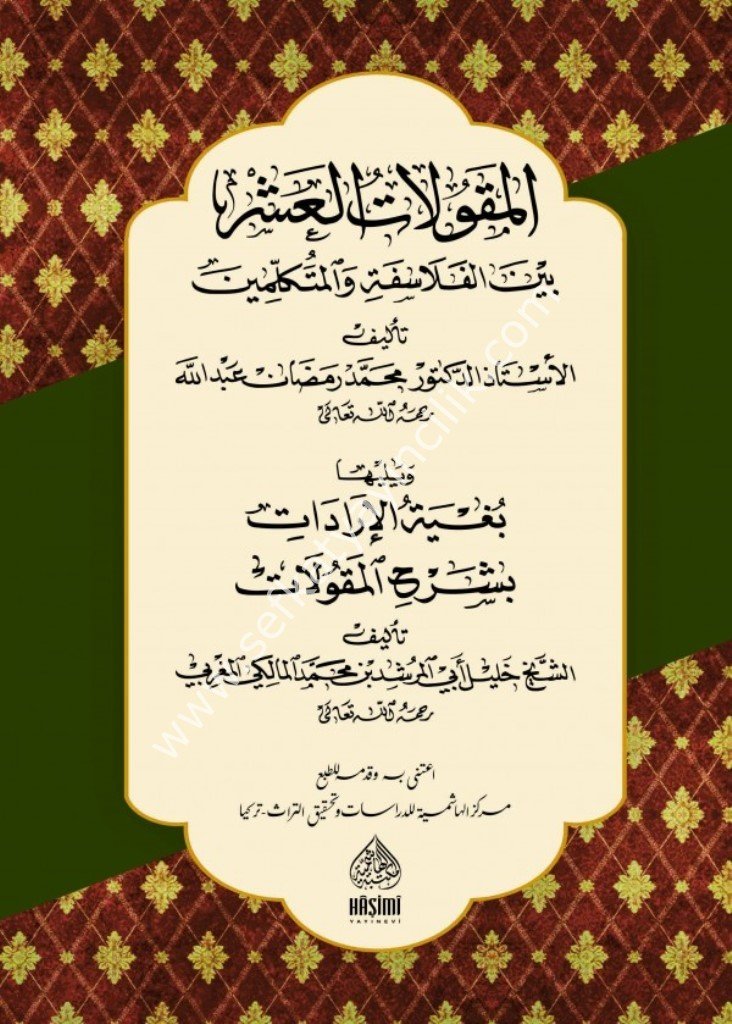 المَقُولَاتُ العَشْرُ
بَيْنَ الفَلَاسِفَةِ وَالمُتَكَلِّمِينَ
تأليف
الأُسْتَاذ الدكتور محمَّد رمَضَان عَبْد الله
رحمه الله تعالى
وَيَليهَا
بُغْيَةُ الإِرَادَاتِ
بِشَرْحِ المَقُولَاتِ
تأليف
الشَّيْخ خَليل أَبي المُرشد بْن محمَّد المالكي المَغْربي
رحمه الله تعالى
اعتنى به وقدمه للطبع
مركز الهاشمية للدراسات وتحقيق التراث - تركيا
المكتبة الهاشمية
HÂŞİMİ
YAYINEVİ
www.seriyetyayincilik.com